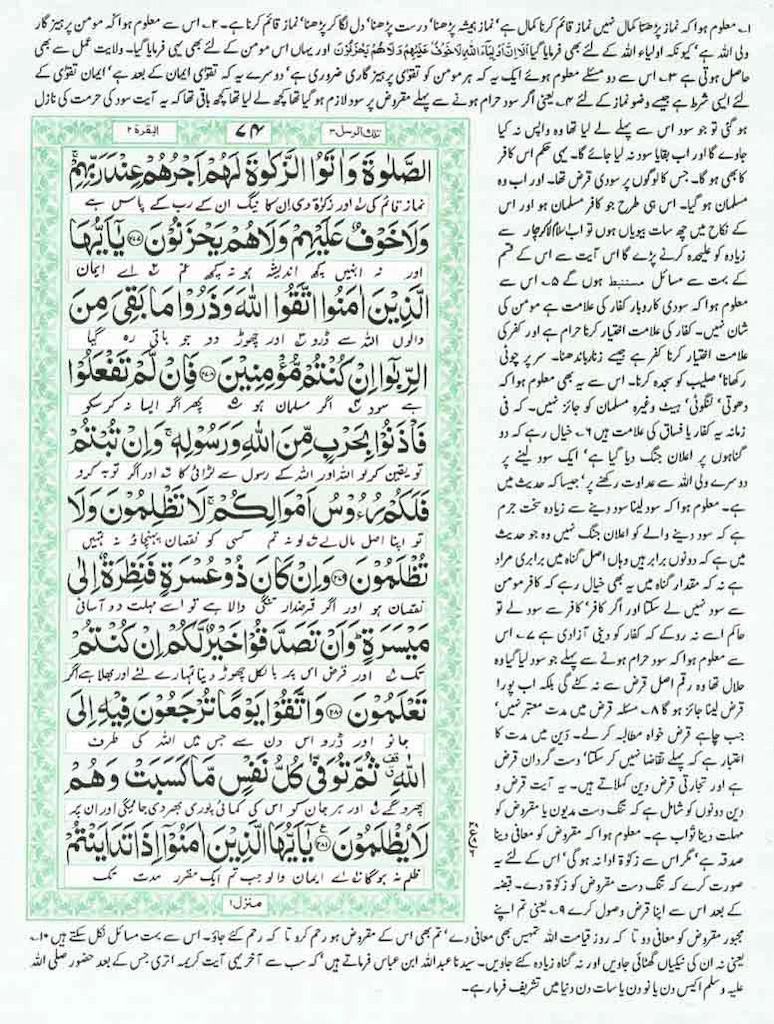 ۱؎ معلوم ہوا کہ نماز پڑھنا کمال نہیں نماز قائم کرنا کمال ہے‘ نماز ہمیشہ پڑھنا‘ درست پڑھنا‘ دل لگا کر پڑھنا‘ نماز قائم کرنا ہے۔ ۲؎ اس سے معلوم ہوا کہ مومن پرہیز گار
ولی اللہ ہے‘ کیونکہ اولیاء اللہ کے لئے بھی فرمایا گیا اَلَآ اِنَّ اَوْلِیَآءَ اللّٰہِ لَا خَوْفٌ عَلَیْھِمْ وَلَا ھُمْ یَحْزَنُوْنَ اور یہاں اس مومن کے لئے بھی یہی فرمایا گیا۔ ولایت عمل سے بھی
حاصل ہوتی ہے ۳؎ اس سے دو مسئلے معلوم ہوئے ایک یہ کہ ہر مومن کو تقویٰ پرہیز گاری ضروری ہے‘ دوسرے یہ کہ تقویٰ ایمان کے بعد ہے‘ ایمان تقویٰ کے
لئے ایسی شرط ہے جیسے وضو نماز کے لئے ۴؎ یعنی اگر سود حرام ہونے سے پہلے مقروض پر سود لازم ہو گیا تھا کچھ لے لیا تھا کچھ باقی تھا کہ یہ آیت سود کی حرمت کی نازل
ہو گئی تو جو سود اس سے پہلے لے لیا تھا وہ واپس نہ کیا
جاوے گا اور اب بقایا سود نہ لیا جائے گا۔ یہی حکم اس کافر
کا بھی ہو گا۔ جس کا لوگوں پر سودی قرض تھا۔ اور اب وہ
مسلمان ہو گیا۔ اس ہی طرح جو کافر مسلمان ہو اور اس
کے نکاح میں چھ سات بیویاں ہوں تو اب اسلام لا کر چار سے
زیادہ کو علیحدہ کرنے پڑے گا اس آیت سے اس کے قسم
کے بہت سے مسائل مستنبط ہوں گے ۵؎ اس سے
معلوم ہوا کہ سودی کاروبار کفار کی علامت ہے مومن کی
شان نہیں۔ کفار کی علامت اختیار کرنا حرام ہے اور کفر کی
علامت اختیار کرنا کفر ہے جیسے زنار باندھنا۔ سر پر چوٹی
رکھانا‘ صلیب کو سجدہ کرنا۔ اس سے یہ بھی معلوم ہوا کہ
دھوتی‘ لنگوٹی‘ ہیٹ وغیرہ مسلمان کو جائز نہیں۔ کہ فی
زمانہ یہ کفار یا فساق کی علامت ہیں ۶؎ خیال رہے کہ دو
گناہوں پر اعلان جنگ دیا گیا ہے‘ ایک سود لینے پر
دوسرے ولی اللہ سے عداوت رکھنے پر‘ جیسا کہ حدیث میں
ہے۔ معلوم ہوا کہ سود لینا سود دینے سے زیادہ سخت جرم
ہے کہ سود دینے والے کو اعلان جنگ نہیں وہ جو حدیث
میں ہے کہ دونوں برابر ہیں وہاں اصل گناہ میں برابری مراد
ہے نہ کہ مقدار گناہ میں یہ بھی خیال رہے کہ کافر مومن
سے سود نہیں لے سکتا اور اگر کافر‘ کافر سے سود لے تو
حاکم اسے نہ روکے کہ کفار کو دینی آزادی ہے ۷؎ اس
سے معلوم ہوا کہ سود حرام ہونے سے پہلے جو سود لیا گیا وہ
حلال تھا وہ رقم اصل قرض سے نہ کٹے گی بلکہ اب پورا
قرض لینا جائز ہو گا ۸؎ مسئلہ قرض میں مدت معتبر نہیں‘
جب چاہے قرض خواہ مطالبہ کر لے۔ دَین میں مدت کا
اعتبار ہے کہ پہلے تقاضا نہیں کر سکتا‘ دست گرداں قرض
ہے اور تجارتی قرض دین کہلاتے ہیں۔ یہ آیت قرض و
دین دونوں کو شامل ہے کہ تنگ دست مدیون یا مقروض کو
مہلت دینا ثواب ہے۔ معلوم ہوا کہ مقروض کو معافی دینا
صدقہ ہے‘ مگر اس سے زکوٰۃ ادا نہ ہو گی‘ اس کے لئے یہ
صورت کرے کہ تنگ دست مقروض کو زکوٰۃ دے۔ قبضہ
کے بعد اس سے اپنا قرض وصول کرے ۹؎ یعنی تم اپنے
مجبور مقروض کو معافی دو تا کہ روز قیامت اللہ تمہیں بھی معافی دے‘ تم بھی اس کے مقروض ہو رحم کرو تا کہ رحم کئے جاؤ۔ اس سے بہت مسائل نکل سکتے ہیں ۱۰؎
یعنی نہ ان کی نیکیاں گھٹائی جاویں اور نہ گناہ زیادہ کئے جاویں۔ سیدنا عبداللہ ابن عباس فرماتے ہیں‘ کہ سب سے آخر یہی آیت کریمہ اتری جس کے بعد حضور صلی اللہ
علیہ وسلم اکیس دن یا نو دن یا سات دن دنیا میں تشریف فرما رہے۔
تلک الرسل ۳
۷۴
البقرۃ ۲
الصَّلٰوةَ وَاٰتَوُا الزَّكٰوةَ لَهُمْ اَجْرُهُمْ عِنْدَ رَبِّهِمْ
نماز قائم کی اور زکوٰۃ دی ان کا نیگ ان کے رب کے پاس ہے
وَلَا خَوْفٌ عَلَيْهِمْ وَلَا هُمْ يَحْزَنُوْنَ ﴿۲۷۷﴾ يٰۤاَيُّهَا
اور نہ انہیں کچھ اندیشہ ہو نہ کچھ غم اے ایمان
الَّذِيْنَ اٰمَنُوا اتَّقُوا اللّٰهَ وَذَرُوْا مَا بَقِيَ مِنَ
والوں اللہ سے ڈرو اور چھوڑ دو جو باقی رہ گیا
الرِّبٰۤوا اِنْ كُنْتُمْ مُّؤْمِنِيْنَ ﴿۲۷۸﴾ فَاِنْ لَّمْ تَفْعَلُوْا
ہے سود اگر مسلمان ہو پھر اگر ایسا نہ کر سکو
فَاْذَنُوْا بِحَرْبٍ مِّنَ اللّٰهِ وَرَسُوْلِهٖ ۚ وَاِنْ تُبْتُمْ
تو یقین کر لو اللہ اور اللہ کے رسول سے لڑائی کا اور اگر توبہ کرو
فَلَكُمْ رُءُوْسُ اَمْوَالِكُمْ ۚ لَا تَظْلِمُوْنَ وَلَا
تو اپنا اصل مال لے لو نہ تم کسی کو نقصان پہنچاؤ نہ تمہیں
تُظْلَمُوْنَ ﴿۲۷۹﴾ وَاِنْ كَانَ ذُوْ عُسْرَةٍ فَنَظِرَةٌ اِلٰى
نقصان ہو اور اگر قرضدار تنگی والا ہے تو اسے مہلت دو آسانی
مَيْسَرَةٍ ؕ وَاَنْ تَصَدَّقُوْا خَيْرٌ لَّكُمْ اِنْ كُنْتُمْ
تک اور قرض اس پر بالکل چھوڑ دینا تمہارے لئے اور بھلا ہے اگر
تَعْلَمُوْنَ ﴿۲۸۰﴾ وَاتَّقُوْا يَوْمًا تُرْجَعُوْنَ فِيْهِ اِلَى
جانو اور ڈرو اس دن سے جس میں اللہ کی طرف
اللّٰهِ ۗ ثُمَّ تُوَفّٰى كُلُّ نَفْسٍ مَّا كَسَبَتْ وَهُمْ
پھرو گے اور ہر جان کو اس کی کمائی پوری بھر دی جائیگی اور ان پر
لَا يُظْلَمُوْنَ ﴿۲۸۱﴾ يٰۤاَيُّهَا الَّذِيْنَ اٰمَنُوْۤا اِذَا تَدَايَنْتُمْ
ظلم نہ ہوگا اے ایمان والو جب تم ایک مقرر مدت تک
منزل ۱